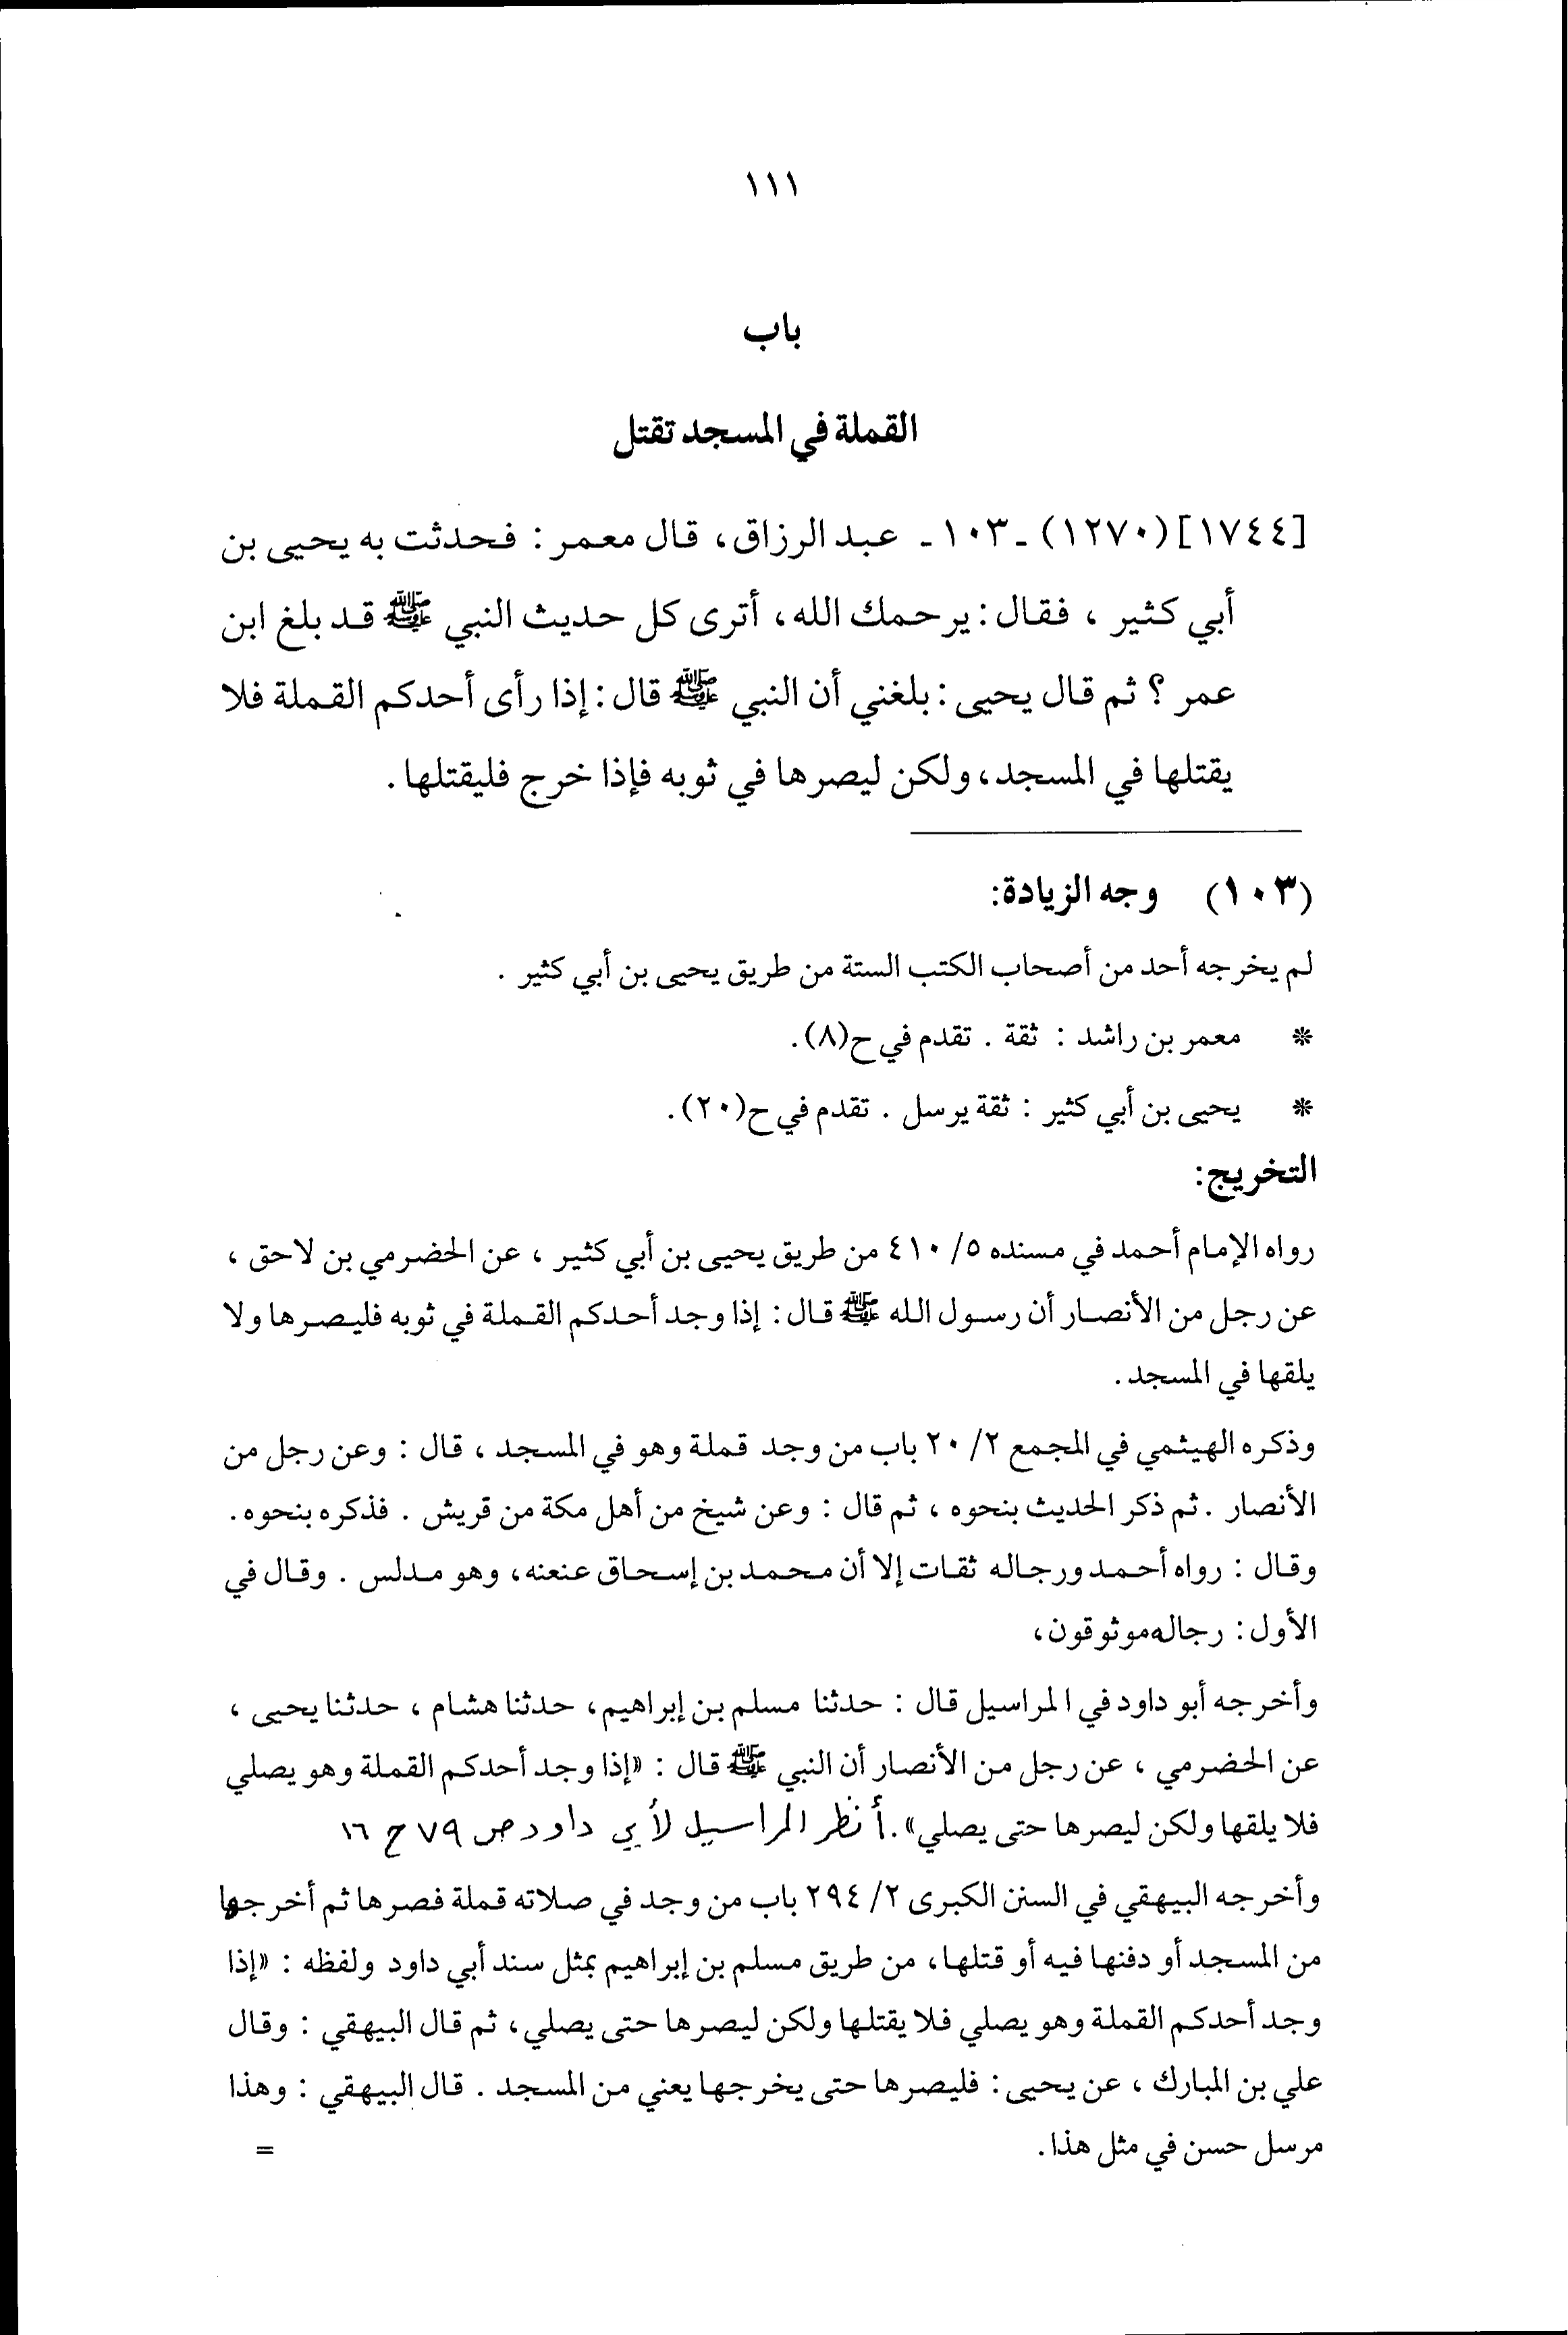 ١١١
باب
القملة في المسجد تقتل
[١٧٤٤] (١٢٧٠) ـ ١٠٣ ـ عبد الرزاق، قال معمر: فحدثت به يحيى بن
أبي كثير ، فقال: يرحمك الله، أترى كل حديث النبي ﷺ قد بلغ ابن
عمر ؟ ثم قال يحيى: بلغني أن النبي ﷺ قال: إذا رأى أحدكم القملة فلا
يقتلها في المسجد، ولكن ليصرها في ثوبه فإذا خرج فليقتلها .
(١٠٣) وجه الزيادة:
لم يخرجه أحد من أصحاب الكتب الستة من طريق يحيى بن أبي كثير .
* معمر بن راشد : ثقة . تقدم في ح(٨).
* يحيى بن أبي كثير : ثقة يرسل . تقدم في ح(٢٠).
التخريج:
رواه الإمام أحمد في مسنده ٥/ ٤١٠ من طريق يحيى بن أبي كثير ، عن الحضرمي بن لاحق ،
عن رجل من الأنصار أن رسول الله ﷺ قال: إذا وجد أحدكم القملة في ثوبه فليصرها ولا
يلقها في المسجد .
وذكره الهيثمي في المجمع ٢/ ٢٠ باب من وجد قملة وهو في المسجد ، قال : وعن رجل من
الأنصار . ثم ذكر الحديث بنحوه ، ثم قال : وعن شيخ من أهل مكة من قريش . فذكره بنحوه .
وقال : رواه أحمد ورجاله ثقات إلا أن محمد بن إسحاق عنعنه، وهو مدلس . وقال في
الأول: رجاله موثوقون،
وأخرجه أبو داود في المراسيل قال : حدثنا مسلم بن إبراهيم، حدثنا هشام ، حدثنا يحيى ،
عن الحضرمي ، عن رجل من الأنصار أن النبي ﷺ قال : «إذا وجد أحدكم القملة وهو يصلي
فلا يلقها ولكن ليصرها حتى يصلي» . أنظر المراسيل لأبي داود ص ٧٩ ح ١٦
وأخرجه البيهقي في السنن الكبرى ٢/ ٢٩٤ باب من وجد في صلاته قملة فصرها ثم أخرجها
من المسجد أو دفنها فيه أو قتلها، من طريق مسلم بن إبراهيم بمثل سند أبي داود ولفظه : «إذا
وجد أحدكم القملة وهو يصلي فلا يقتلها ولكن ليصرها حتى يصلي، ثم قال البيهقي : وقال
علي بن المبارك ، عن يحيى: فليصرها حتى يخرجها يعني من المسجد . قال البيهقي : وهذا
مرسل حسن في مثل هذا . =